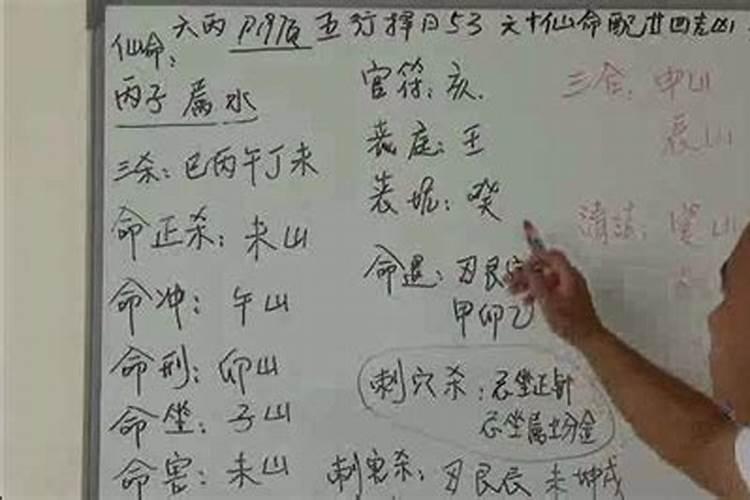 六丙阴阳五行择日53 六十仙命配廿四吉凶
仙命：
丙子 属水
三杀：巳丙午丁未
命正杀：未山
命冲：午山
命刑：卯山
命坐：子山
命害：未山
官符：亥.
丧庭：壬
丧坭：癸
命退：丑艮寅
甲卯乙
刺穴杀：忌坐正针
忌坐属土分金
刺害杀：丑艮辰 未坤戌
三合：申山
辰山